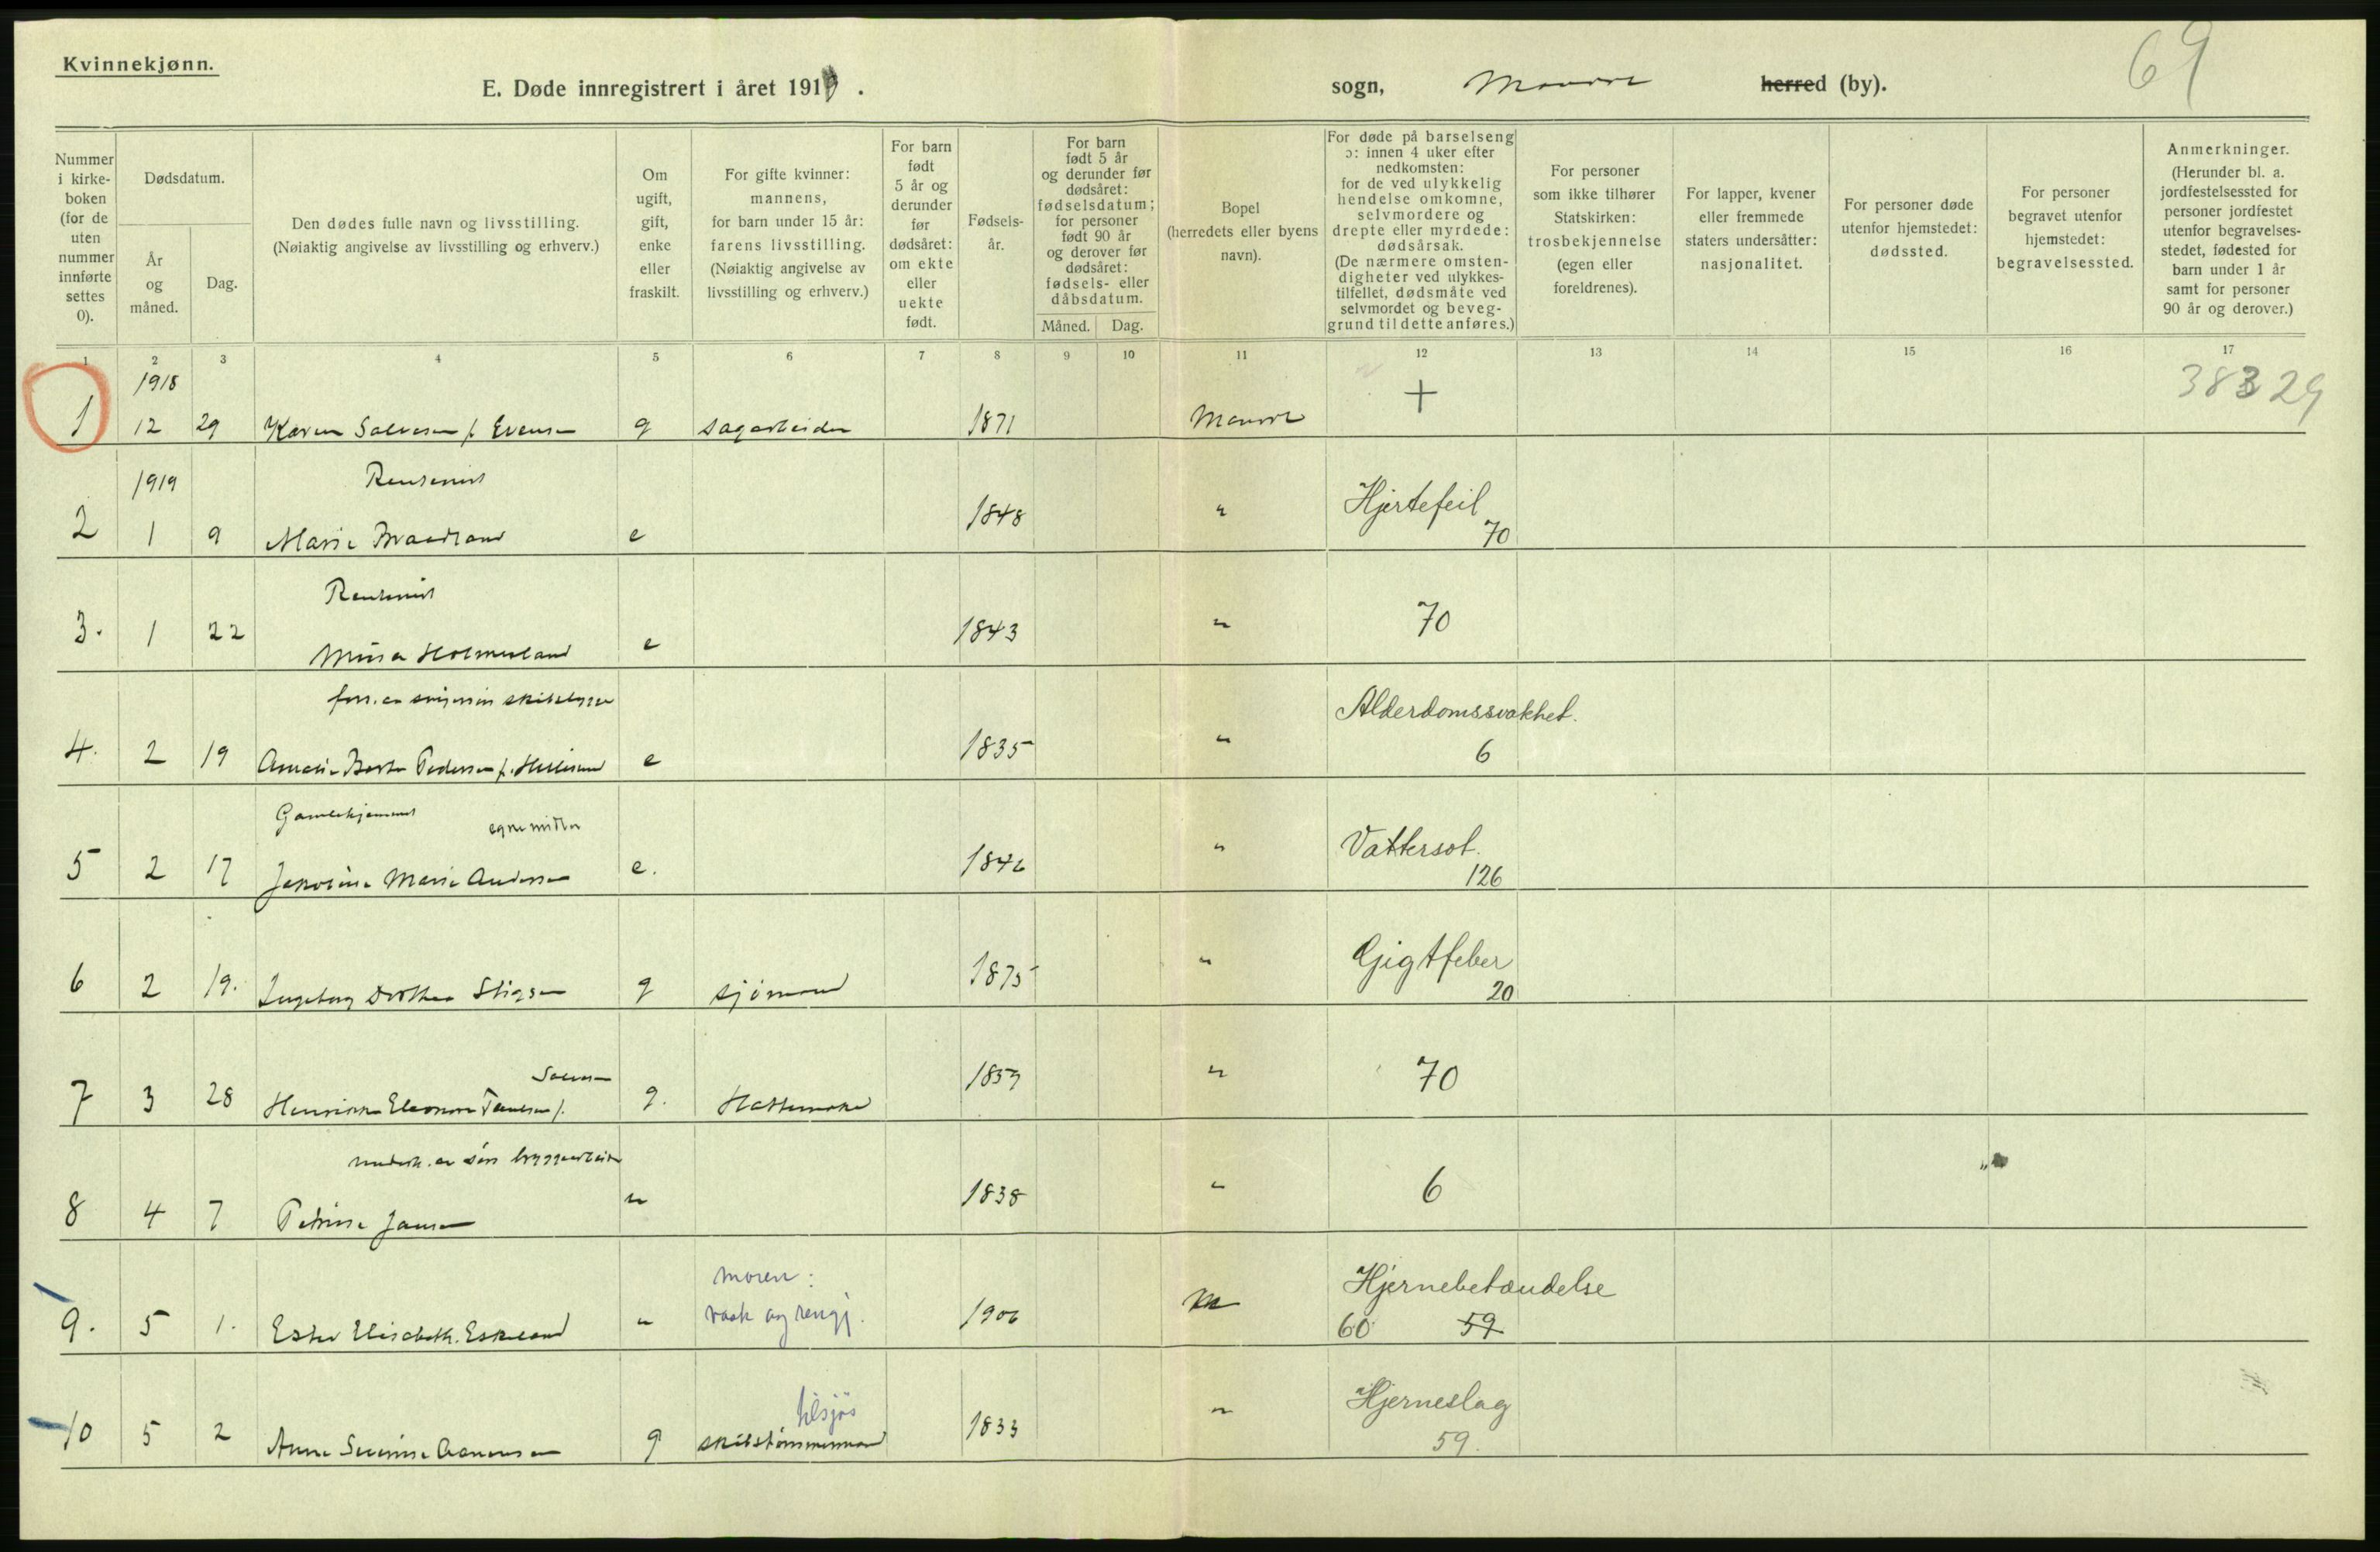 Kvinnekjønn.
69
E. Døde innregistrert i året 1919.
sogn, herred (by).
Nummer i kirke-boken (for de uten nummer innførte settes 0).
Dødsdatum.
År og måned.
Dag.
Den dødes fulle navn og livsstilling.
(Nøiaktig angivelse av livsstilling og erhverv.)
Om ugift, gift, enke eller fraskilt.
For gifte kvinner: mannens, for barn under 15 år: farens livsstilling. (Nøiaktig angivelse av livsstilling og erhverv.)
For barn født 5 år og derunder før dødsåret: om ekte eller uekte født.
Fødsels-år.
For barn født 5 år og derunder før dødsåret: fødselsdatum; for personer født 90 år og derover før dødsåret: fødsels- eller dåbsdatum.
Måned.
Dag.
Bopel (herredets eller byens navn).
For døde på barselseng ɔ: innen 4 uker efter nedkomsten: for de ved ulykkelig hendelse omkomne, selvmordere og drepte eller myrdede: dødsårsak. (De nærmere omsten-digheter ved ulykkes-tilfellet, dødsmåte ved selvmordet og beveg-grund til dette anføres.)
For personer som ikke tilhører Statskirken: trosbekjennelse (egen eller foreldrenes).
For lapper, kvener eller fremmede staters undersåtter: nasjonalitet.
For personer døde utenfor hjemstedet: dødssted.
For personer begravet utenfor hjemstedet: begravelsessted.
Anmerkninger. (Herunder bl. a. jordfestelsessted for personer jordfestet utenfor begravelses-stedet, fødested for barn under 1 år samt for personer 90 år og derover.)
1 2 3 4 5 6 7 8 9 10 11 12 13 14 15 16 17
1918
1 12 29 Karen Salvesen f. Evensen g sagarbeider 1871 + 38329
1919
2 1 9 Marie e 1848 " Hjertefeil
70
3. 1 22 e 1843 " 70
4. 2 19 Pedersen f. e 1835 " Alderdomssvakhet.
6
Gamlehjemmet egne midler
5 2 17 Marie Andersen e. " Vattersot.
126
6 2 19. Ingeborg Dorthea Stigsen g sjömand 1875 " Gigtfeber
20
Salvesen
7 3 28 Eleonora f. g. Hattemaker " 70
8 4 7 Petrine Jansen " 1838 " 6
9. 5 1. Ester Elisabeth Eskeland " moren:
vask og rengj. 1906 Hjernebetændelse
60 59
tilsjös
10 5 2 Anne Severine g skibstömmermand 1833 " Hjerneslag
59.